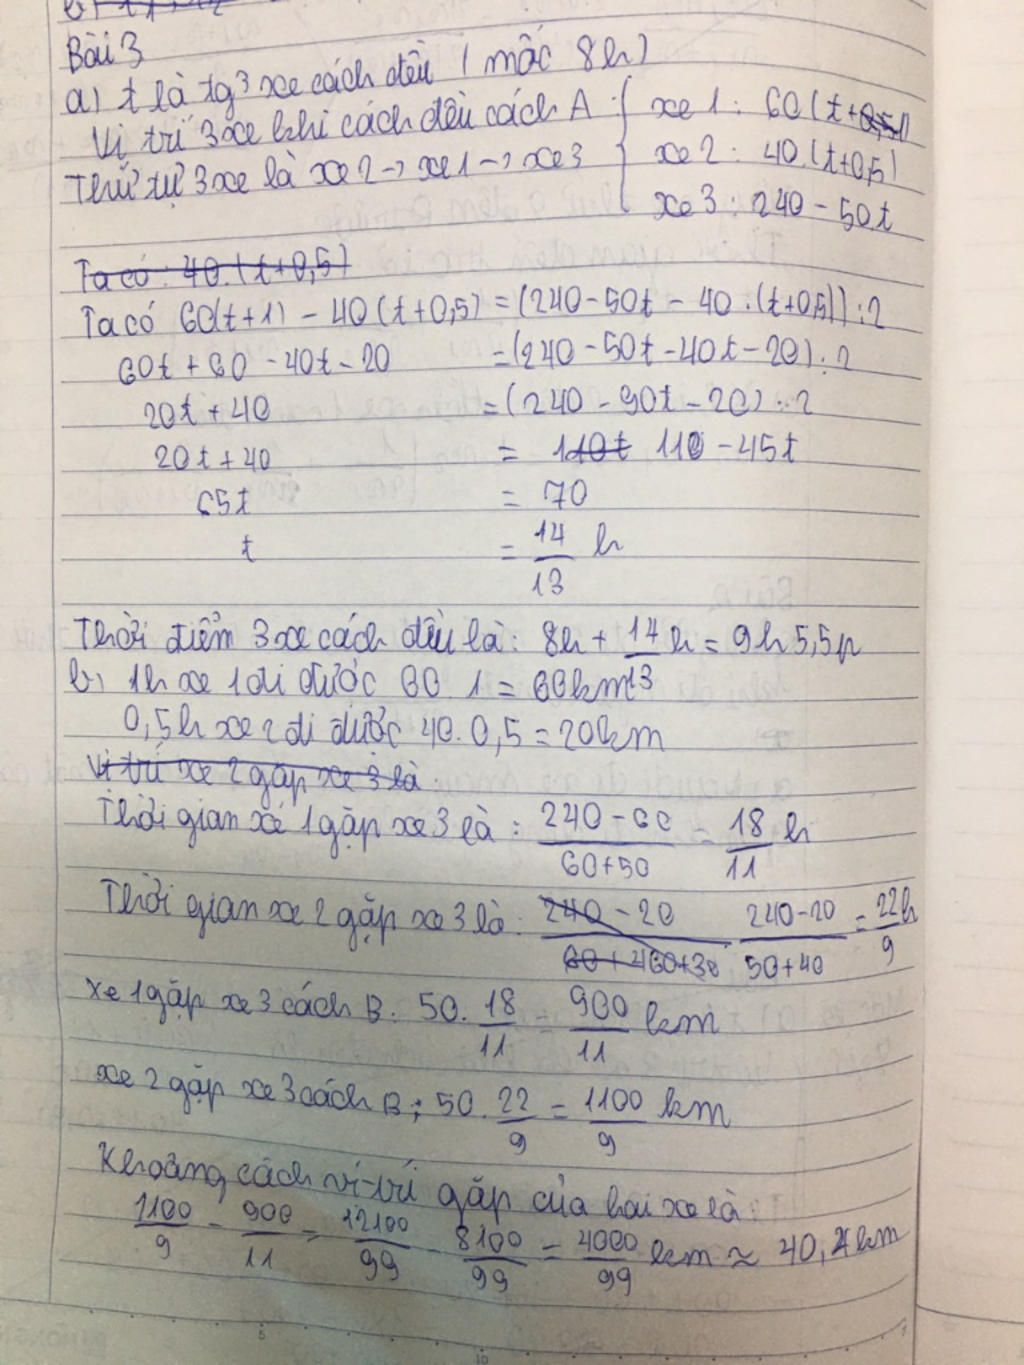 Bài 3
a) t là tg 3 xe cách đều (mốc 8h)
Vị trí 3 xe khi cách đều cách A : { xe 1 : 60(t+
Thứ tự 3 xe là xe 2 -> xe 1 -> xe 3 xe 2 : 40.(t+0,5)
xe 3 : 240 - 50t
Ta có : 40.(t+0,5)
Ta có 60(t+1) - 40(t+0,5) = (240-50t - 40.(t+0,5)) : 2
60t + 60 - 40t - 20 = (240 - 50t - 40t - 20) : 2
20t + 40 = (240 - 90t - 20) : 2
20t + 40 = 110t 110 - 45t
65t = 70
t = 14/13 h
Thời điểm 3 xe cách đều là : 8h + 14/13 h = 9h 5,5p
b) 1h xe 1 đi được 60.1 = 60km
0,5h xe 2 đi được 40.0,5 = 20km
Vị trí xe 2 gặp xe 3 là :
Thời gian xe 1 gặp xe 3 là : (240-60)/(60+50) = 18/11 h
Thời gian xe 2 gặp xe 3 là : (240-20)/(50+40) = 22/9 h
Xe 1 gặp xe 3 cách B : 50.18/11 = 900/11 km
xe 2 gặp xe 3 cách B : 50.22/9 = 1100/9 km
Khoảng cách vị trí gặp của hai xe là :
1100/9 - 900/11 = 12100/99 - 8100/99 = 4000/99 km ≈ 40,4km